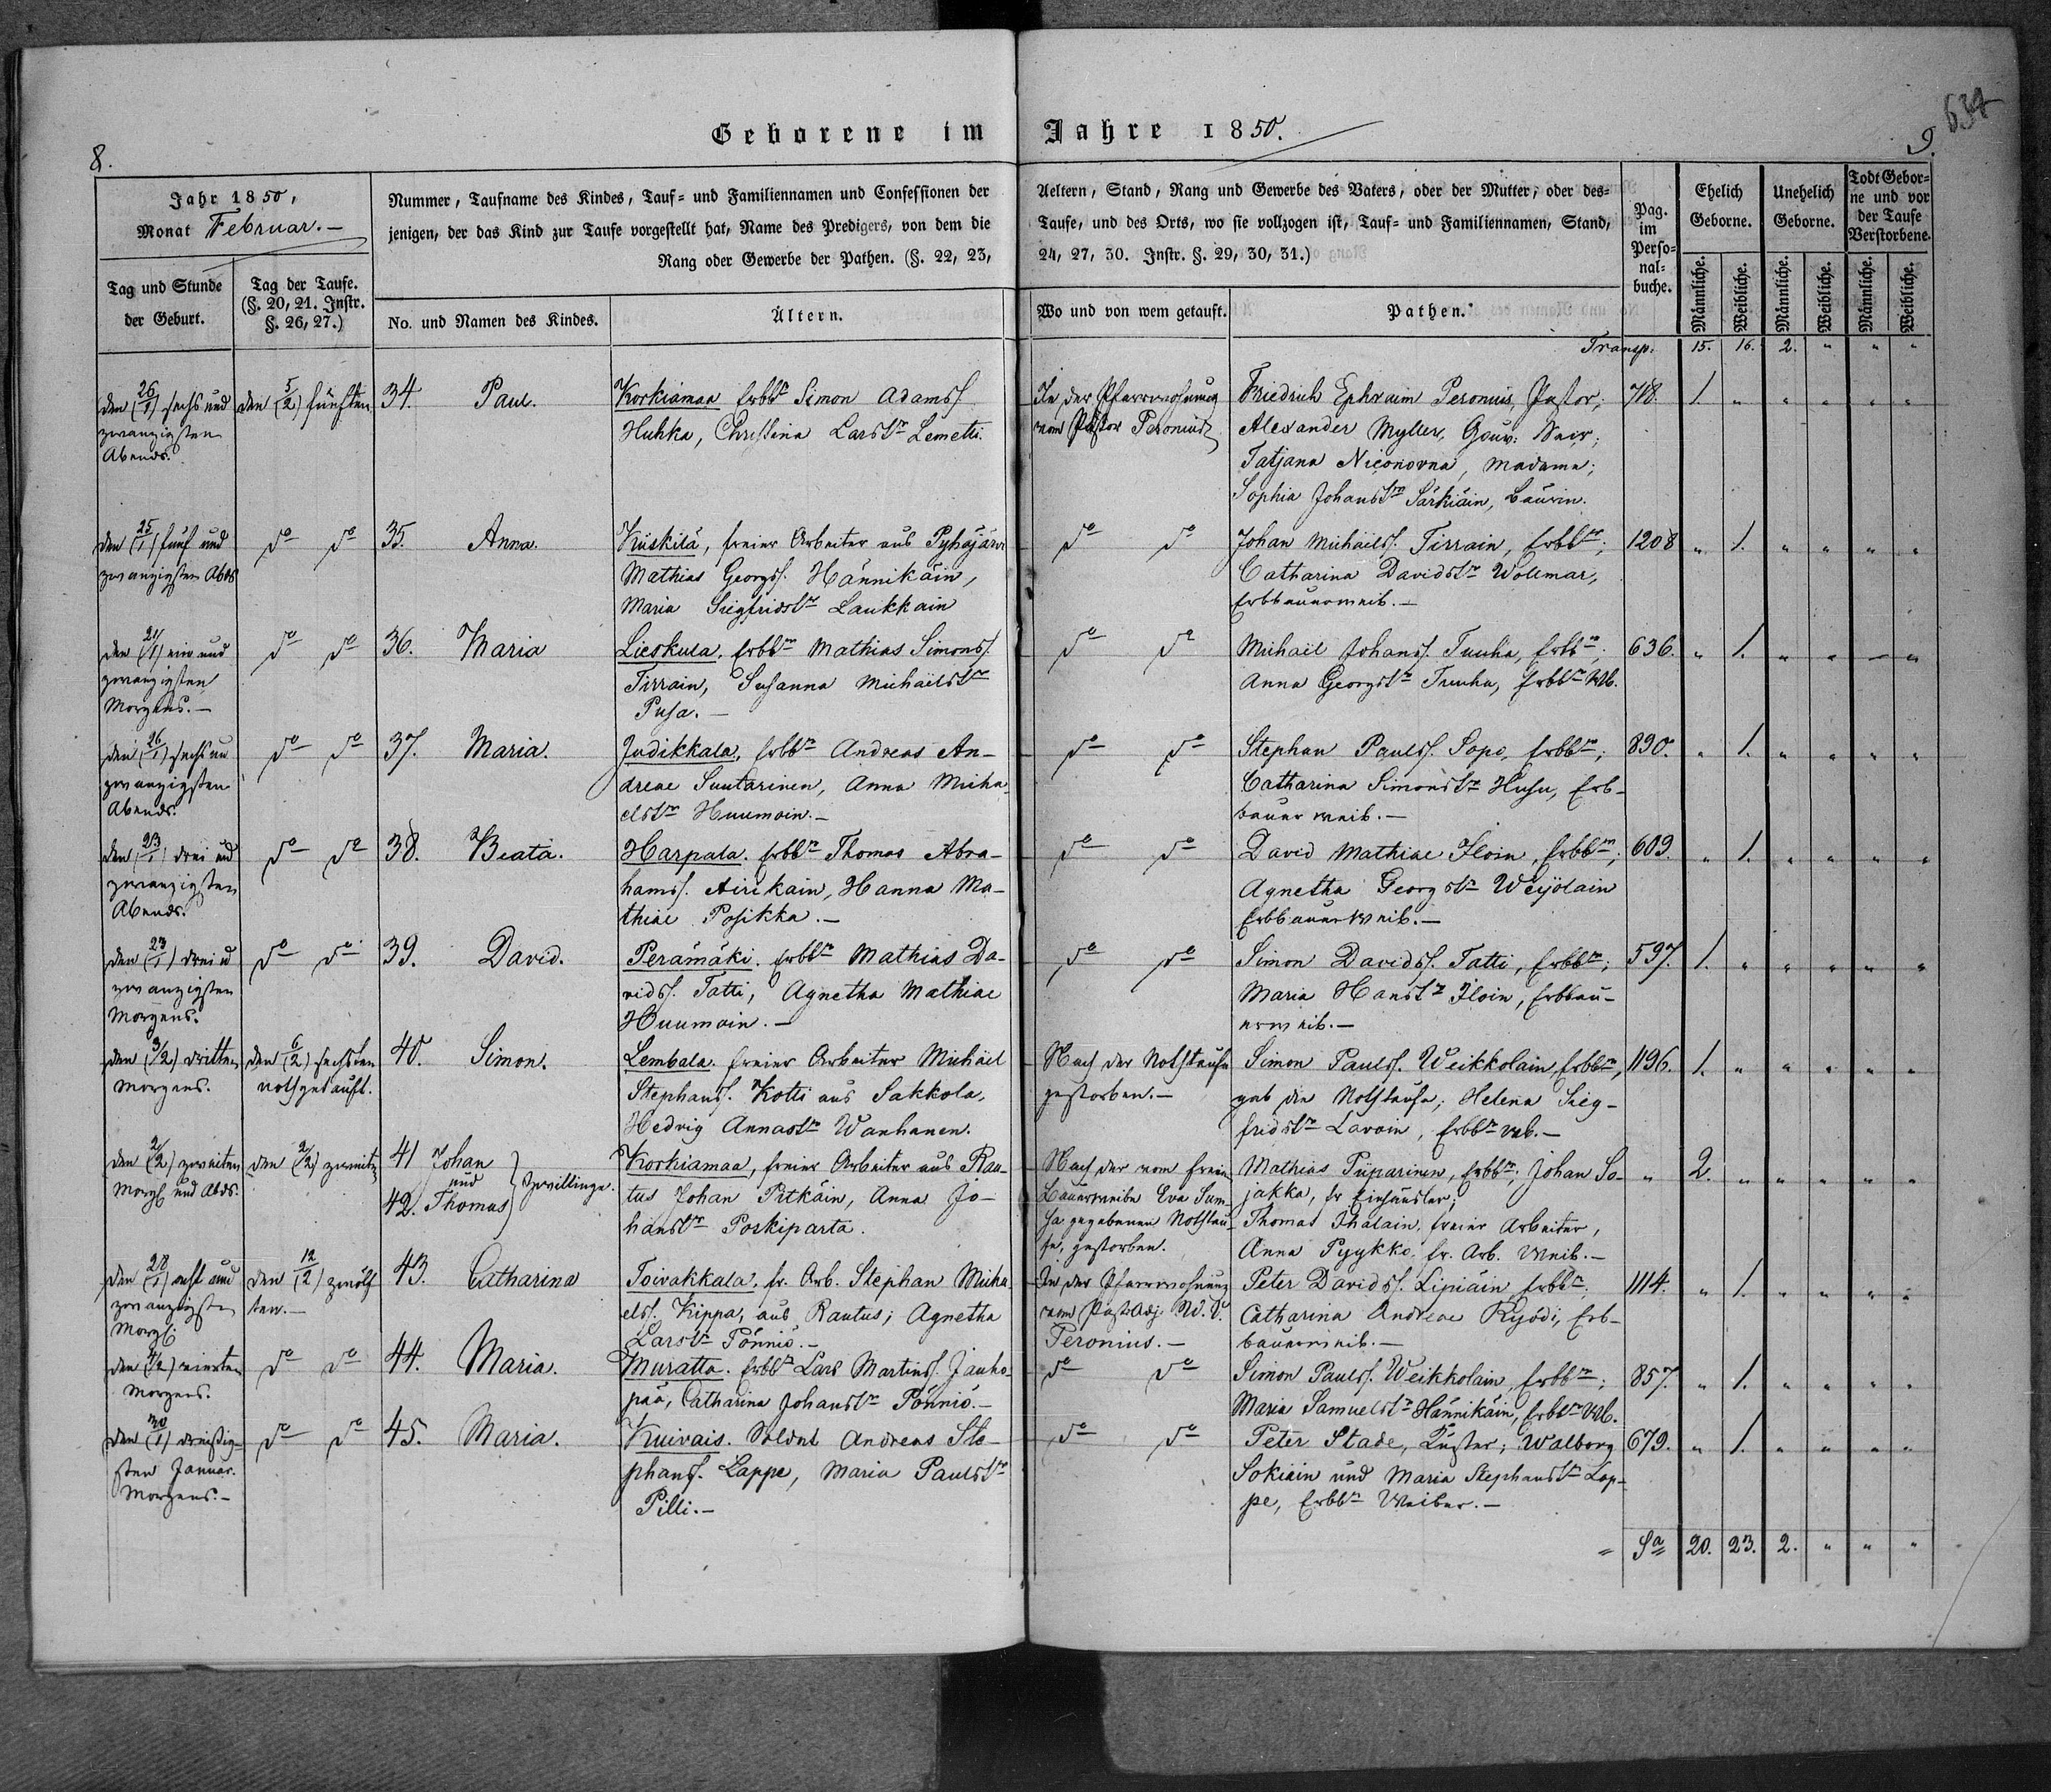 634
Geborene im Jahre 1850.
8.
9.
Jahr 1850,
Monat Februar.—
Nummer, Taufname des Kindes, Tauf- und Familiennamen und Confessionen der
jenigen, der das Kind zur Taufe vorgestellt hat, Name des Predigers, von dem die
Rang oder Gewerbe der Pathen. (§. 22, 23,
Aeltern, Stand, Rang und Gewerbe des Vaters, oder der Mutter, oder des-
Taufe, und des Orts, wo sie vollzogen ist, Tauf- und Familiennamen, Stand,
24, 27, 30. Instr. §. 29, 30, 31.)
Pag. im Perso-nal-buche.
Ehelich Geborne.
Unehelich Geborne.
Todt Gebor-ne und vor der Taufe Verstorbene.
Tag und Stunde der Geburt.
Tag der Taufe. (§. 20, 21. Instr. §. 26, 27.)
No. und Namen des Kindes.
Ältern.
Wo und von wem getauft.
Pathen.
Männliche. Weibliche. Männliche. Weibliche. Männliche. Weibliche.
Transp. 15. 16. 2. " " "
den (26/1) sechs und
zwanzigsten
Abends.
den (5/2) fünften
34. Paul.
Korkiamaa Erbbr Simon Adamss.
Hukka, Christina Larstr Lemetti.
In der Pfarrwohnung
vom Pastor Peronius
Friedrich Ephraim Peronius, Pastor;
Alexander Myller, Gouv:
Tatjana Niconovna, Madame;
Sophia Johanstr Särkiäin, Bäurin.
718. 1. " " " " "
den (25/1) fünf und
zwanzigsten Abds
do do
35. Anna.
Kiiskilä, freier Arbeiter aus Pyhäjärvi
Mathias Georgss. Hännikäin,
Maria Siegfridstr Laukkain
do do
Johan Michaelss. Tirrain, Erbbr;
Catharina Davidstr Wollmar,
Erbbauerweib.—
1208 " 1. " " " "
den (21/1) ein und
zwanzigsten
Morgens.—
do do
36. Maria
Lieskula, Erbbr Mathias Simonss.
Tirrain, Susanna Michaëlstr
Pusa.—
do do
Michail Johanss. Tuuha, Erbbr;
Anna Georgstr Tuuha, Erbbr Wb.
636. " 1. " " " "
den (26/1) sechs un
zwanzigsten
Abends.
do do
37. Maria.
Judikkala, Erbbr Andreas An-
dreae Suutarinen, Anna Micha-
elstr Huumoin.—
do do
Stephan Paulss. Sopo, Erbbr;
Catharina Simonstr Husu, Erb-
bauerweib.—
890. " 1. " " " "
den (23/1) drei und
zwanzigsten
Abends.
do do
38. Beata.
Harpala. Erbbr Thomas Abra-
hamss. Airikain, Hanna Ma-
thiae Posikka.—
do do
David Mathiae Iloin, Erbbr;
Agnetha Georgstr Weijolain
Erbbauerweib.—
609. " 1. " " " "
den (23/1) drei u
zwanzigsten
Morgens.
do do
39. David.
Perämäki. Erbbr Mathias Da-
vidss. Tatti, Agnetha Mathiae
Huumoin.—
do do
Simon Davidss. Tatti, Erbbr;
Maria Hanstr Iloin, Erbbau-
erweib.—
597. 1. " " " " "
den (3/2) dritten
Morgens.
den (6/2) sechsten
nothgetauft.
40. Simon.
Lembala. freier Arbeiter Michäel
Stephanss. Kotti aus Sakkola,
Hedvig Annastr Wanhanen.
Nach der Nothtaufe
gestorben.—
Simon Paulss. Weikkolain, Erbbr,
gab die Nothtaufe; Helena Sieg-
fridstr Lavoin, Erbbr wb.—
1196. 1. " " " " "
den (2/2) zweiten
Morgs und Abds.
den (2/2) zweiten
41 Johan
und
42. Thomas
Zwillinge.
Korkiamaa, freier Arbeiter aus Rau-
tus Johan Pitkäin, Anna Jo-
hanstr Porkiparta.
Nach der vom freien
Bauerweibe Eva Sum-
sa gegebenen Nothtau-
fe, gestorben.
Mathias Piiparinen, Erbbr; Johan So-
jakka, fr Einhäusler;
Thomas Ihalain, freier Arbeiter,
Anna Pyykkö fr. Arb. Weib.—
" 2. " " " " "
den (28/1) acht und
zwanzigsten
Morgs
den (12/2) zwölf
ten.—
43. Catharina
Toivakkala, fr. Arb. Stephan Micha
elss. Kippa, aus Rautus; Agnetha
Larstr Pönniö.—
In der Pfarrwohnung
vom Past. Adj.
Peronius.—
Peter Davidss. Lipiäin, Erbbr.
Catharina Andreae Ryödi, Erb-
bauerweib.—
1114. " 1. " " " "
den (4/2) vierten
Morgens.
do do
44. Maria.
Muratta. Erbbr Lars Martinss. Jauho-
pää, Catharina Johanstr Pönniö.—
do do
Simon Paulss. Weikkolain, Erbbr;
Maria Samuelstr Hännikäin, Erbbr Wb.
857. " 1. " " " "
den (30/1) dreißig-
sten Januar.
Morgens.—
do do
45. Maria.
Kuivais. Soldat Andreas Ste-
phanss. Lappe, Maria Paulstr
Pilli.—
do do
Peter Stade, Küster; Walborg
Sokiain und Maria Stephanstr Lap-
pe, Erbbr Weiber.—
679. " 1. " " " "
Sa 20. 23. 2. " " "